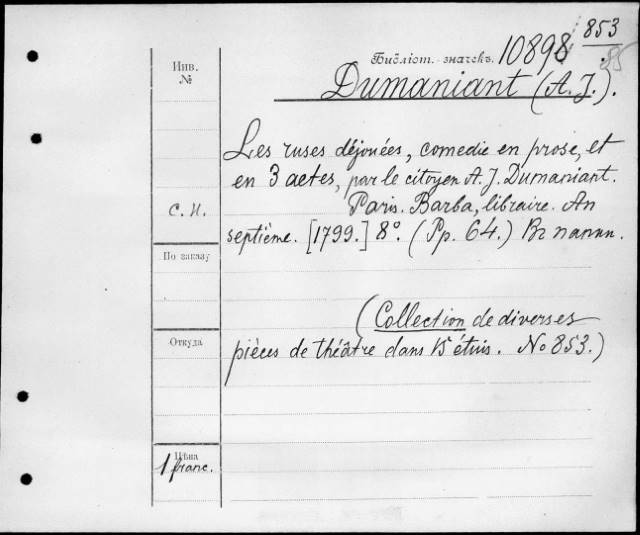 853
Инв.
№
Библіот. значекъ. 10898
85
Dumaniant (A. J.).
Les ruses déjouées, comedie en prose, et
en 3 actes, par le citoyen A. J. Dumaniant.
С. П.
Paris. Barba, libraire. An
septiéme. [1799.] 8°. (Pp. 64.) Въ папкѣ.
По заказу
(Collection de diverses
Откуда
pièces de théâtre dans 15 étuis. No 853.)
Цѣна
1 franc.